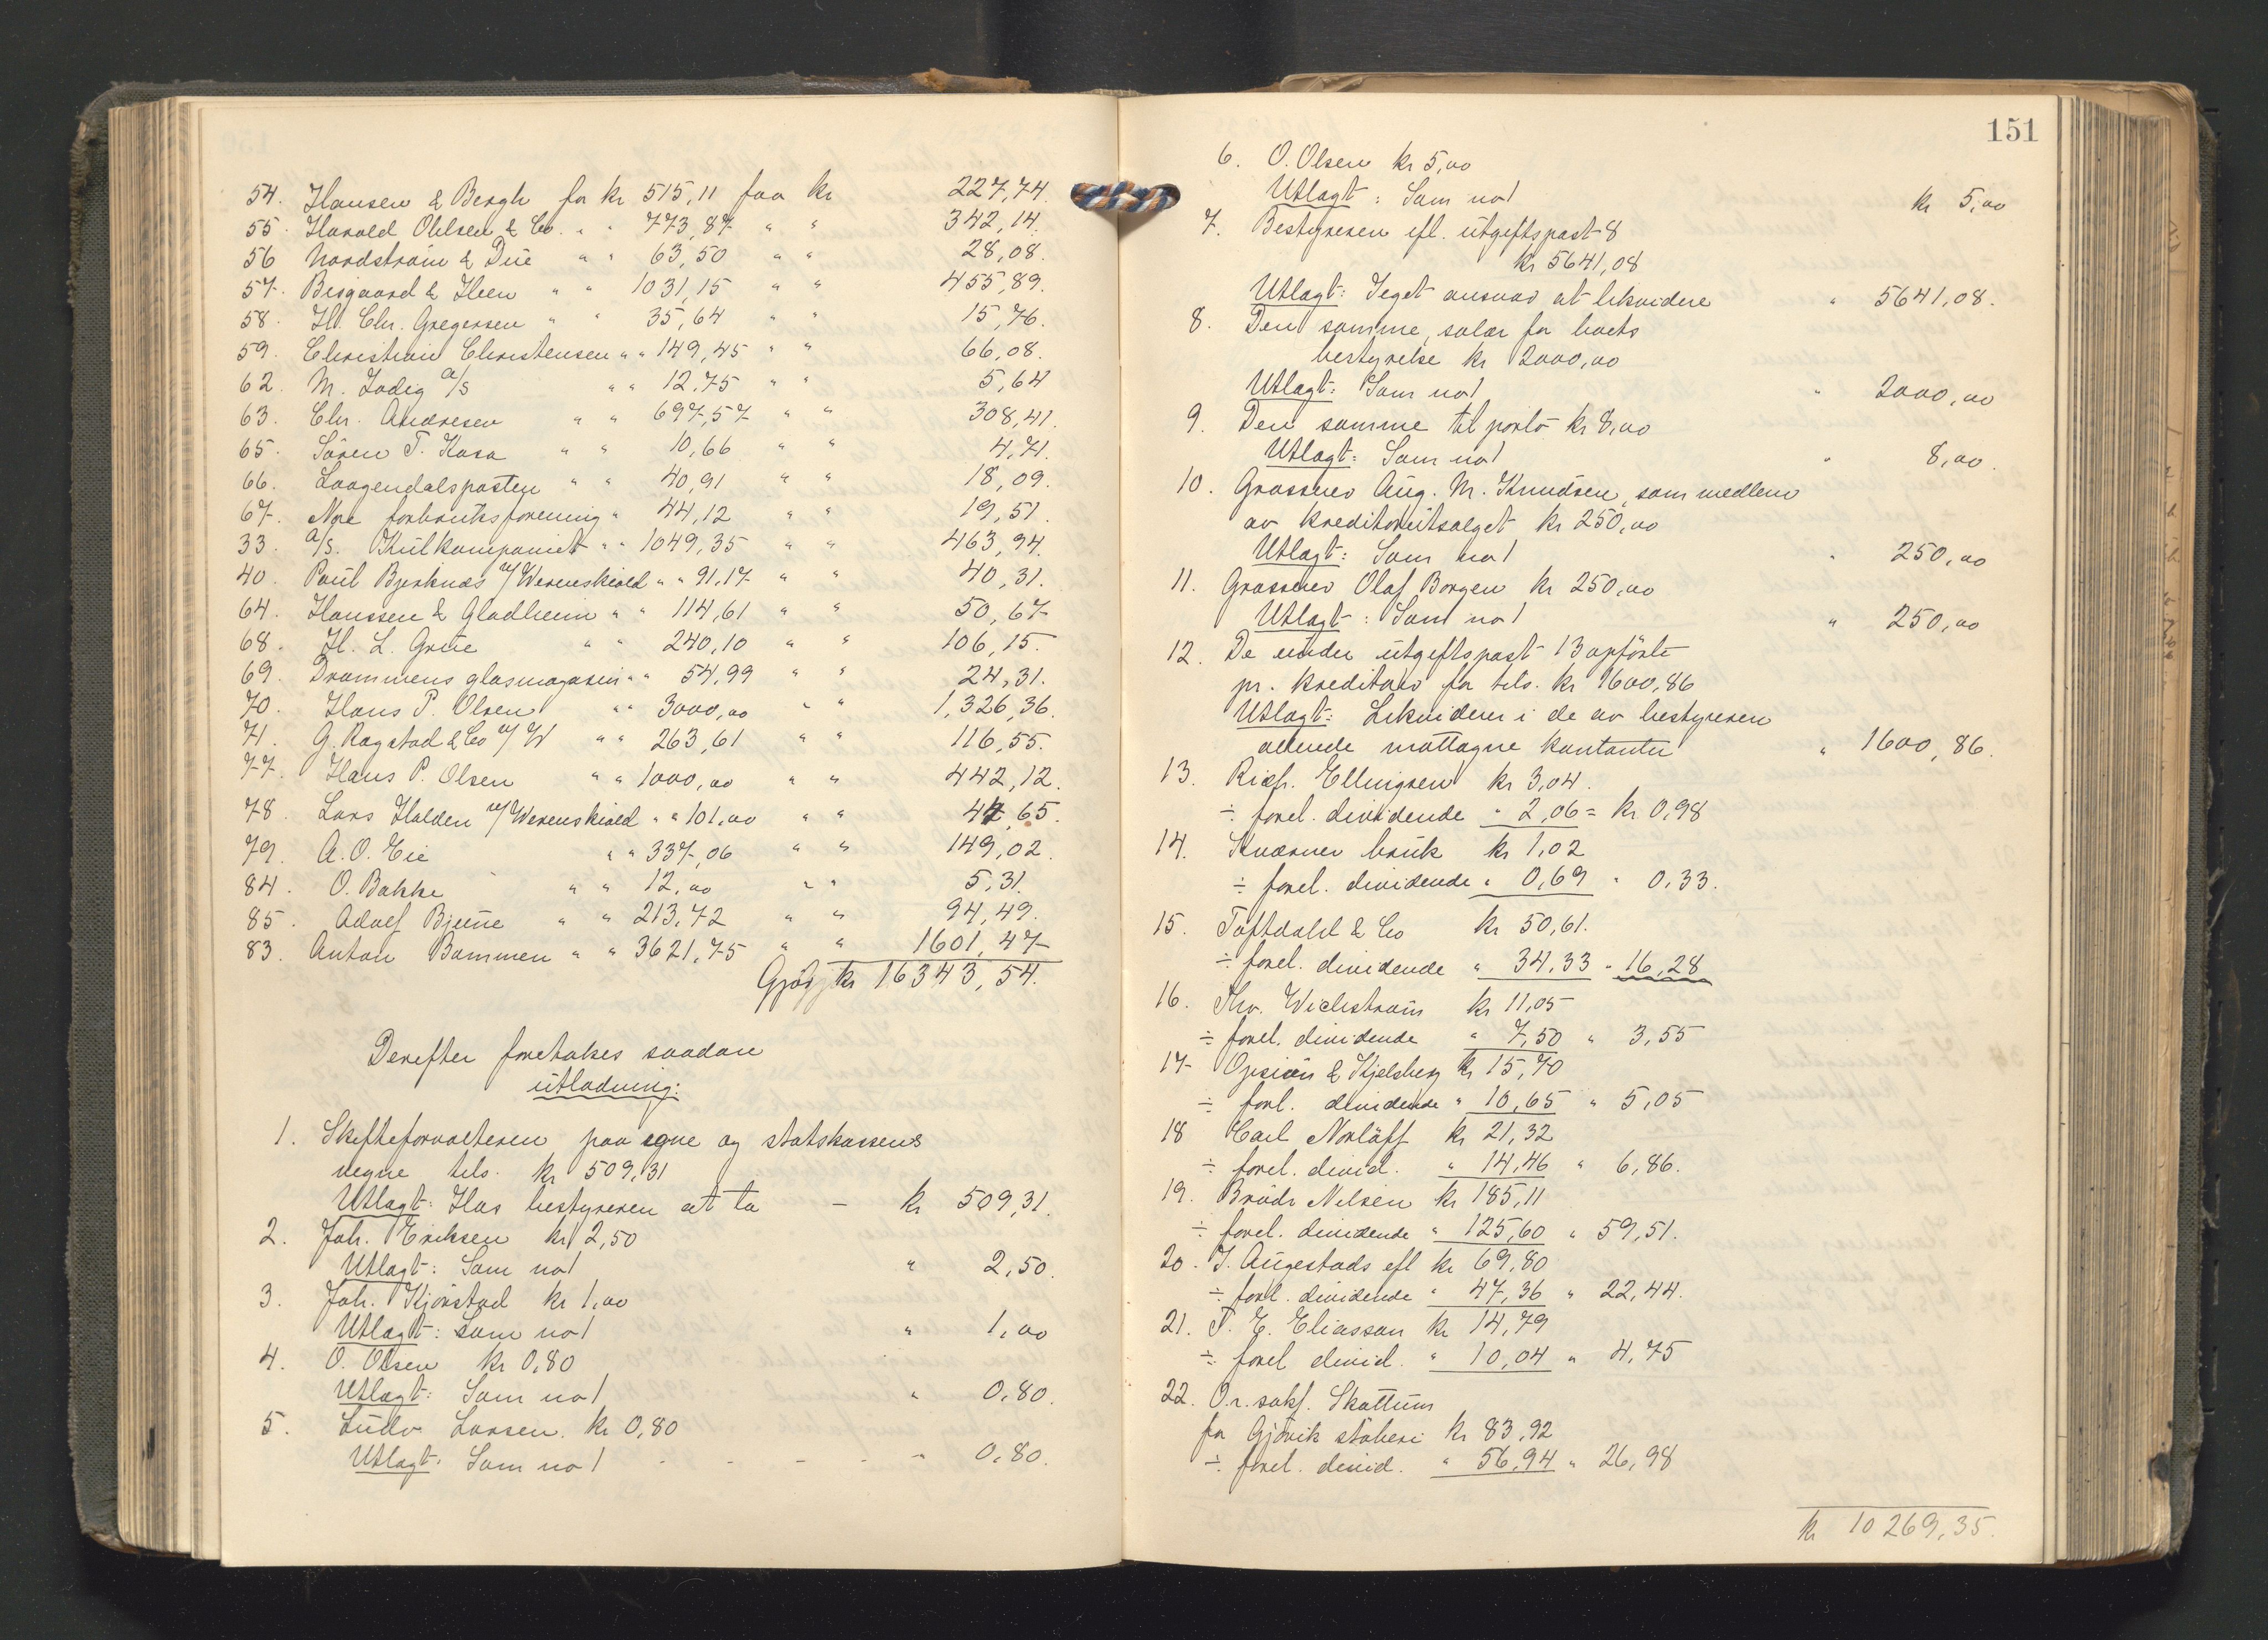 54. Hansen & Bergh for kr 515,11 faa kr 227,74.
55. Harald Ohlsen & Co. " " 773,87 " " 342,14.
56 Nordstrøm & Due " " 63,50 " " 28,08.
57. Bisgaard & Heen " " 1031,15 " " 455,89.
58. H. Chr. Gregersen " " 35,64 " " 15,76.
59. Christian Christensen " " 149,45 " " 66,08.
62. M. Zadig A/S " " 12,75 " " 5,64
63. Chr. Andresen " " 697,57 " " 308,41
65. Sören T. Kasa " " 10,66 " " 4,71.
66. Laagendalsposten " " 40,91 " " 18,09.
67. Nore forbruksforening " 44,12 " " 19,51.
33. A/S. Kulkompaniet " " 1049,35 " " 463,94.
40. Paul Bjerknes v/Werenskiold " " 91,17 " " 40,31.
64. Hanssen & Gladheim " " 114,61 " " 50,67
68. H. L. Grue " " 240,10 " " 106,15.
69. Drammens glasmagasin " " 54,99 " " 24,31.
70. Hans P. Olsen " " 3000,00 " " 1,326,36.
71. G. Ragstad & Co v/W " " 263,61 " " 116,55.
77. Hans P. Olsen " " 1000,00 " " 442,12.
78. Lars Halden v/Werenskiold " " 101,00 " " 44,65.
79. A. O. Eie " " 337,06 " " 149,02.
84. O. Bakke " " 12,00 " " 5,31.
85. Adolf Bjerne " " 213,72 " " 94,49.
83. Anton Bammen " " 3621,75 " " 1601,47
Gjör kr 16343,54.
Derefter foretokes saadan
utlodning:
1. Skifteforvalteren paa egne og statskassens
vegne tils. kr 509,31
Utlagt: Hos bestyreren at ta — kr 509,31.
2. Joh. Eriksen kr 2,50
Utlagt: Som no 1 " 2,50.
3. Joh. Kjörstad kr 1,00
Utlagt: Som no 1 " 1,00
4. O. Olsen kr 0,80
Utlagt: Som no 1 " 0,80.
5. Ludv Larsen. kr 0,80
Utlagt: Som no 1 - - - - " 0,80.
151
6. O. Olsen kr 5,00
Utlagt: Som no 1 kr 5,00
7. Bestyreren efl. utgiftspost 8
kr 5641,08
Utlagt: Eget ansvar at likvidere " 5641,08.
8. Den samme, salær for boets
bestyrelse kr 2000,00
Utlagt: Som no 1 " 2000,00
9. Den samme til porto kr 8,00
Utlagt: Som no 1 " 8,00.
10. Grosserer Aug. M. Knudsen, som medlem
av kreditorutvalget kr 250,00
Utlagt: Som no 1 " 250,00
11. Grosserer Olaf Borgen kr 250,00
Utlagt: Som no 1 " 250,00
12. De under utgiftspost 13 opförte
pr. kreditorer for tils. kr 1600,86
Utlagt: Likviderer i de av bestyreren
allerede mottagne kontanter " 1600,86.
13. Ellingsen kr 3,04.
÷ forel. dividende " 2,06 = kr 0,98
14. Kværner bruk kr 1,02
÷ forel. dividende " 0,69 " 0,33.
15. Toftdahl & Co kr 50,61.
÷ forel. dividende " 34,33 " 16,28
16. Thv. Wichstrøm kr 11,05
÷ forel. dividende " 7,50 " 3,55
17 & Kjelsberg kr 15,70
÷ forl. dividende " 10,65 " 5,05
18 Carl Norløff kr 21,32
÷ forel. divid. " 14,46 " 6,86.
19. Brödr Nilsen kr 185,11
÷ forel. dividende " 125,60 " 59,51.
20. J. Augestads efl kr 69,80
÷ forl. dividende " 47,36 " 22,44.
21. T. E. Eliasson kr 14,79
÷ forel divid. " 10,04 " 4,75
22. O.r. sakf. Skattum
for Gjövik stöberi kr 83,92
÷ forel. divid. " 56,94 " 26,98
kr 10269,35.